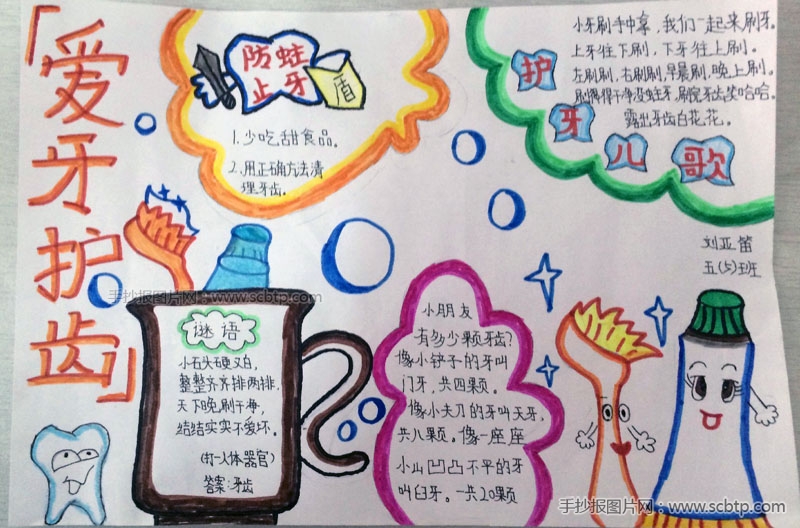 「爱牙护齿」
防蛀
止牙
盾
1.少吃甜食品。
2.用正确方法清
理牙齿。
护牙儿歌
小牙刷手中拿,我们一起来刷牙。
上牙往下刷,下牙往上刷。
左刷刷,右刷刷,早晨刷,晚上刷。
得干净没蛀牙,刷完牙齿笑哈哈。
露出牙齿白花花。
刘亚笛
五(5)班
手抄报图片网:www.scbtp.com
谜语
小石头硬又白,
整整齐齐排两排,
天下晚,刷干净,
结结实实不爱坏。
(打一人体器官)
答案:牙齿
小朋友
有多少颗牙齿?
像小铲子的牙叫
门牙,共四颗。
像小夫刀的牙叫天牙,
共八颗。像一座座
小山凹凸不平的牙
叫臼牙。一共20颗
手抄报图片网:www.scbtp.com